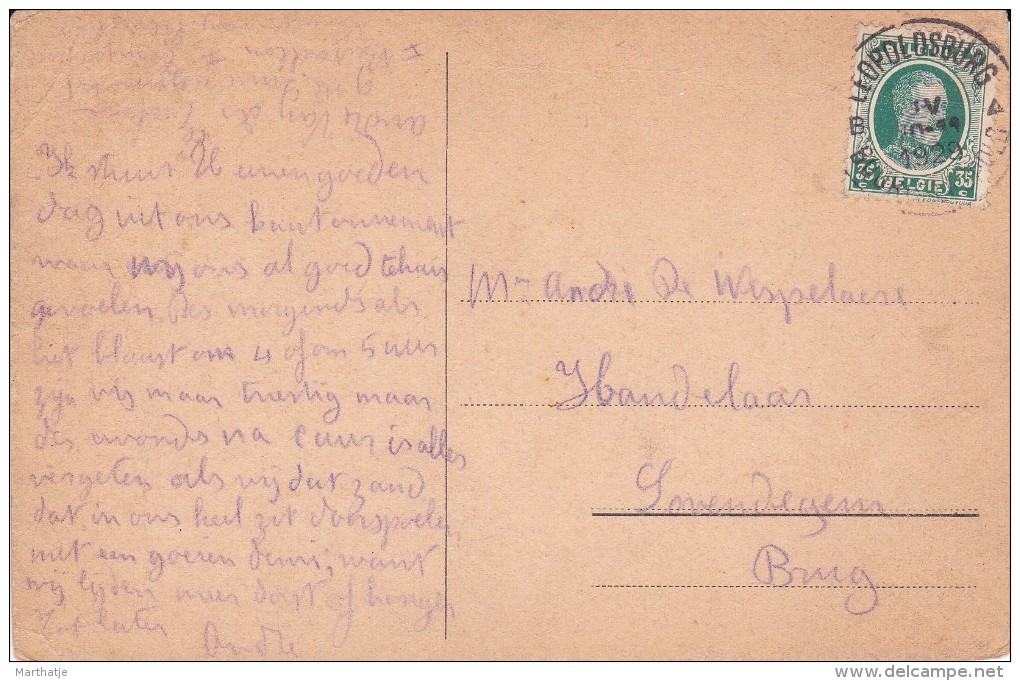 Ik stuur U eenen goeden
dag uit ons kantonnement
waar wij ons al goed tehuis
gevoelen. Des morgends als
het blaast om 4 of om 5 uur
zijn wij maar triestig maar
des avonds na 6 uur is alles
vergeten als wij dat zand
dat in ons keel zit doorspoelen
met een goeien demi; want
wij lijden meer dorst of honger
Tot later
André
Mr André De Wispelaere
Handelaar
Lovendegem
Brug
LEOPOLDSBURG
1929
35 BELGIE 35
c c
Marthatje
delcampe.net